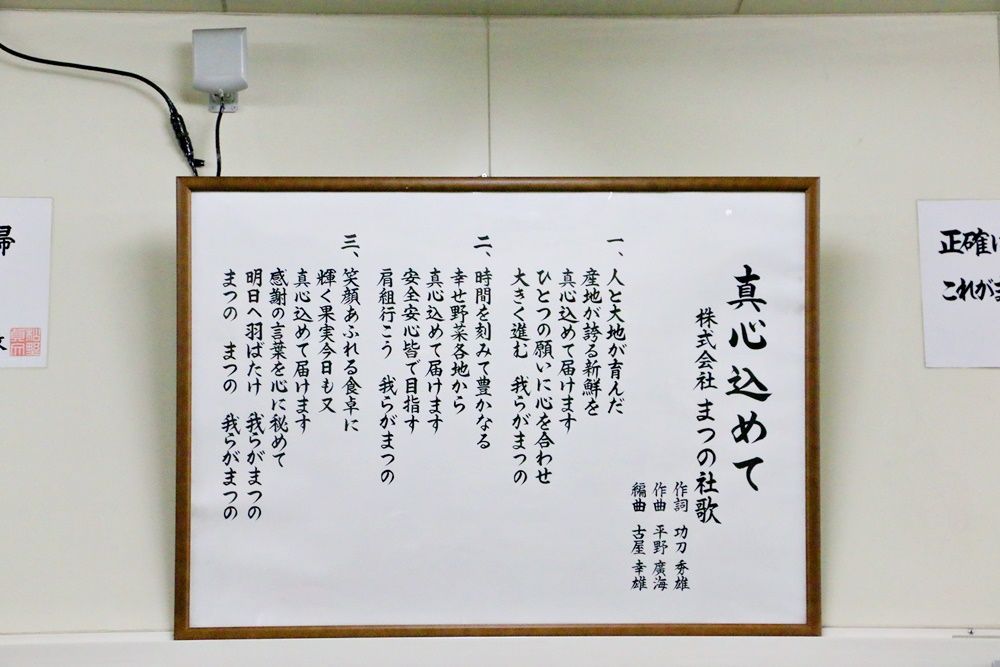 真心込めて
株式会社 まつの社歌
作詞 功刀 秀雄
作曲 平野 廣海
編曲 古屋 幸雄
一、人と大地が育んだ
産地が誇る新鮮を
真心込めて届けます
ひとつの願いに心を合わせ
大きく進む 我らがまつの
二、時間を刻みて豊かなる
幸せ野菜各地から
真心込めて届けます
安全安心皆で目指す
肩組行こう 我らがまつの
三、笑顔あふれる食卓に
輝く果実今日も又
真心込めて届けます
感謝の言葉を心に秘めて
明日へ羽ばたけ 我らがまつの
まつの まつの 我らがまつの
正確に
これがま
帰